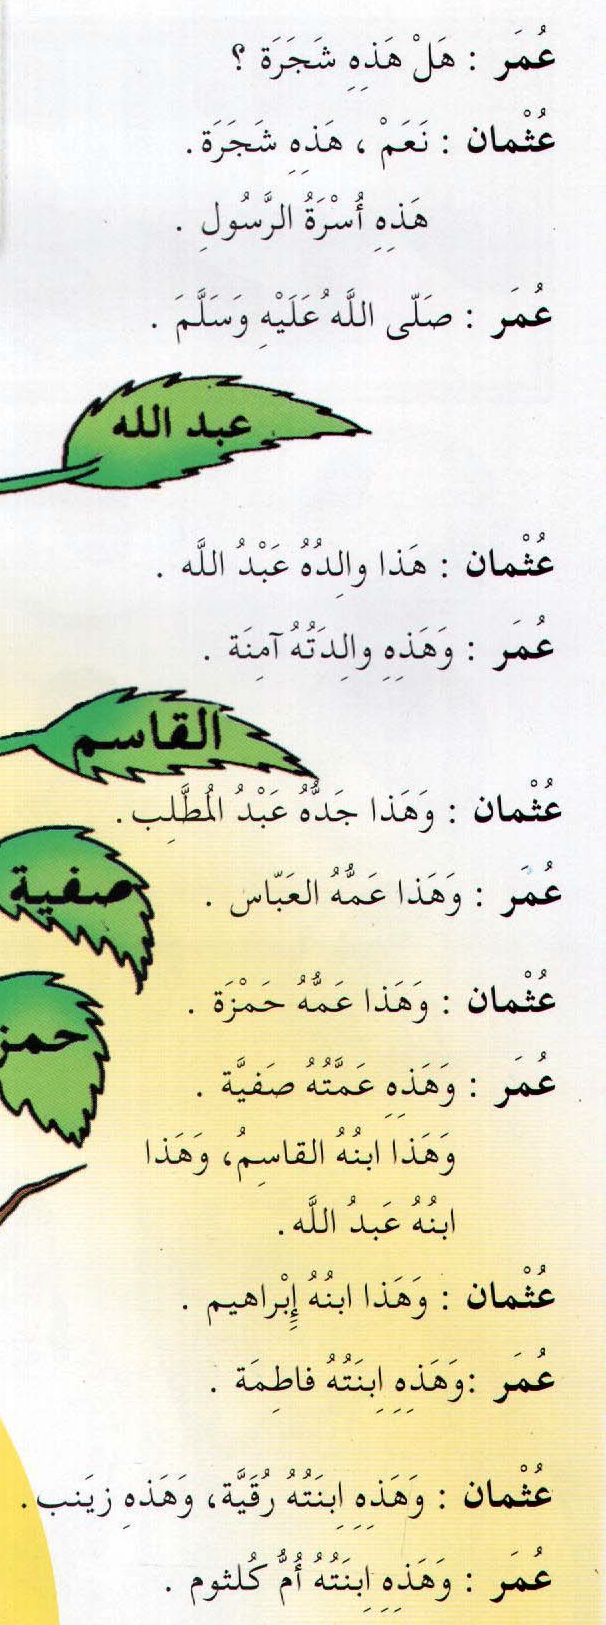 عُمَر : هَلْ هَذِهِ شَجَرَة ؟
عُثْمان : نَعَمْ ، هَذِهِ شَجَرَة .
هَذِهِ أُسْرَةُ الرَّسُولِ .
عُمَر : صَلّى اللَّهُ عَلَيْهِ وَسَلَّمَ .
عبد الله
عُثْمان : هَذا والِدُهُ عَبْدُ اللَّه .
عُمَر : وَهَذِهِ والِدَتُهُ آمِنَة .
القاسم
عُثْمان : وَهَذا جَدُّهُ عَبْدُ المُطَّلِب .
صفية
عُمَر : وَهَذا عَمُّهُ العَبّاس .
عُثْمان : وَهَذا عَمُّهُ حَمْزَة .
حمز
عُمَر : وَهَذِهِ عَمَّتُهُ صَفيَّة .
وَهَذا ابنُهُ القاسِمُ، وَهَذا
ابنُهُ عَبدُ اللَّه .
عُثْمان : وَهَذا ابنُهُ إِبْراهيم .
عُمَر : وَهَذِهِ اِبنَتُهُ فاطِمَة .
عُثْمان : وَهَذِهِ اِبنَتُهُ رُقَيَّة، وَهَذهِ زيَنب .
عُمَر : وَهَذِهِ اِبنَتُهُ أُمُّ كُلثوم .